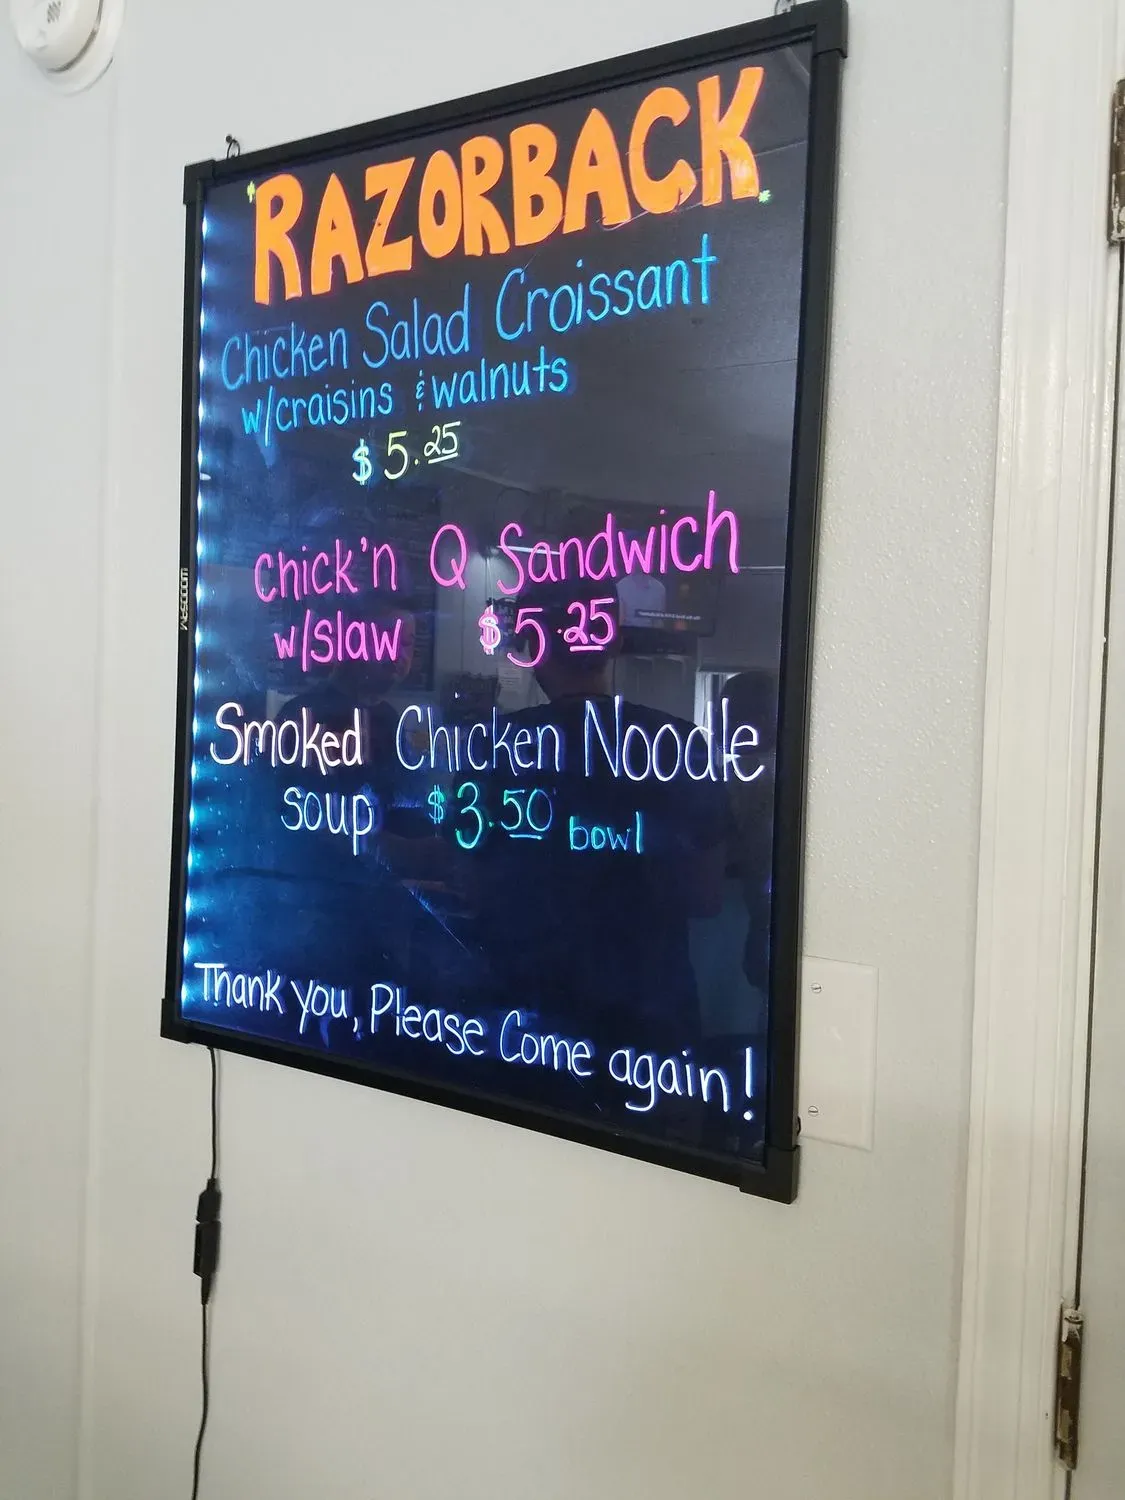 RAZORBACK
Chicken Salad Croissant
w/craisins & walnuts
$5.25
Chick'n Q Sandwich
w/slaw $5.25
Smoked Chicken Noodle
soup $3.50 bowl
Thank you, Please Come again!